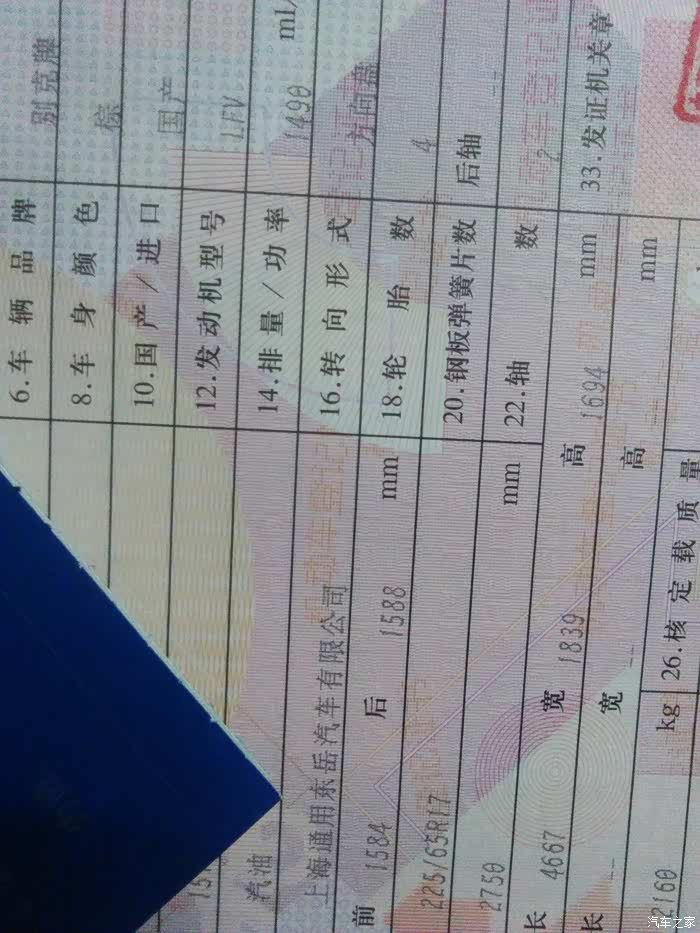 6.车辆品牌 别克牌
8.车身颜色 棕
10.国产/进口 国产
12.发动机型号 LFV
14.排量/功率 1490 ml/
汽油
上海通用东岳汽车有限公司 16.转向形式 方向盘
前 1584 后 1588 mm 18.轮胎数 4
225/65R17 20.钢板弹簧片数 后轴 --
2750 mm 22.轴数 2
长 4667 宽 1839 高 1694 mm 33.发证机关章
长 宽 -- 高 -- mm
2160 kg 26.核定载质量
汽车之家